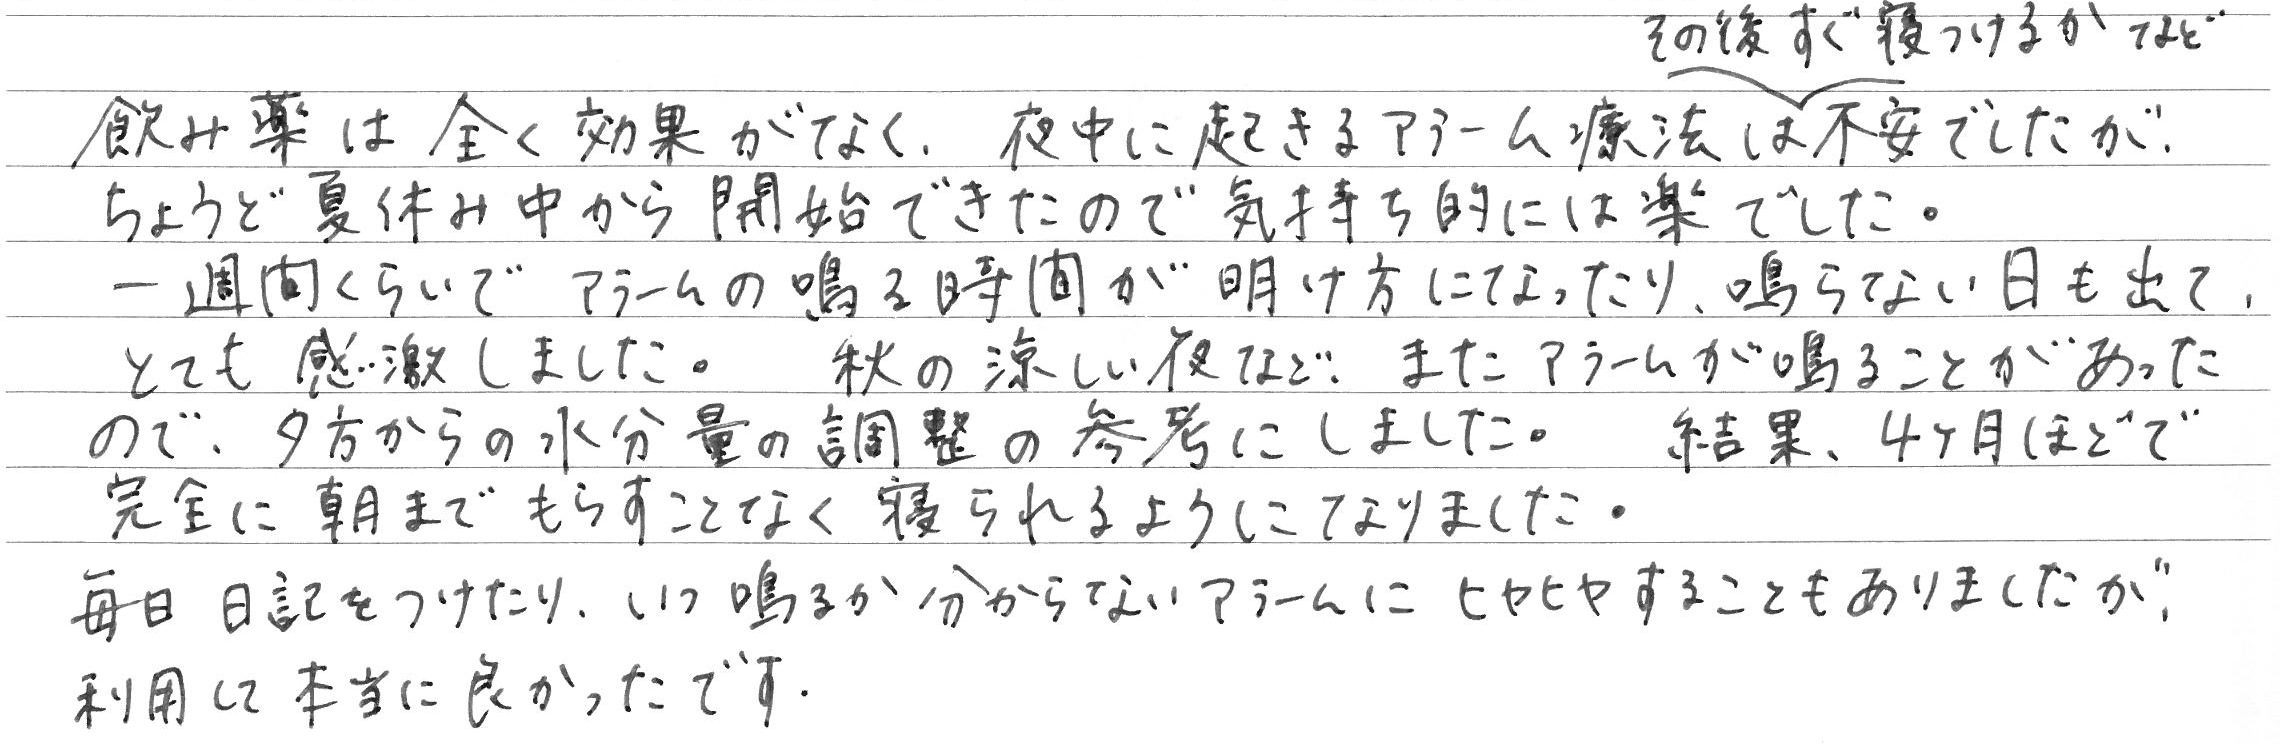 その後すぐ寝つけるかなど
飲み薬は全く効果がなく、夜中に起きるアラーム療法は不安でしたが、
ちょうど夏休み中から開始できたので気持ち的には楽でした。
一週間くらいでアラームの鳴る時間が明け方になったり、鳴らない日も出て、
とても感激しました。 秋の涼しい夜など、またアラームが鳴ることがあった
ので、夕方からの水分量の調整の参考にしました。 結果、4ヶ月ほどで
完全に朝までもらすことなく寝られるようになりました。
毎日日記をつけたり、いつ鳴るか分からないアラームにヒヤヒヤすることもありましたが、
利用して本当に良かったです.